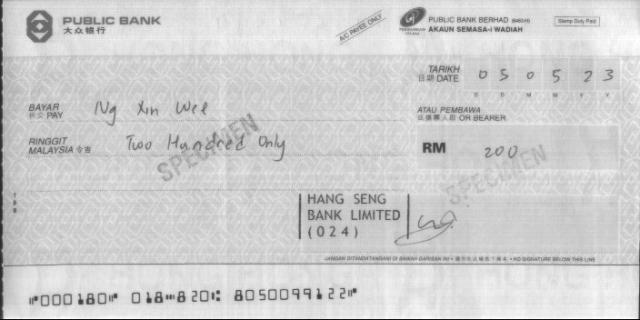 PUBLIC BANK
大众银行
A/C PAYEE ONLY
PUBLIC BANK BERHAD (6463-H)
AKAUN SEMASA-i WADIAH
Stamp Duty Paid
TARIKH
日期 DATE 0 5 0 5 2 3
D D M M Y Y
BAYAR
PAY Ng Xin Wee
ATAU PEMBAWA
OR BEARER
RINGGIT
MALAYSIA 令吉 Two Hundred Only
RM 200
SPECIMEN
SPECIMEN
HANG SENG
BANK LIMITED
(024)
JANGAN TANDATANGANI DI BAWAH GARISAN INI • NO SIGNATURE BELOW THIS LINE
⑈000180⑈ 018⑉820⑆ 8050099122⑈